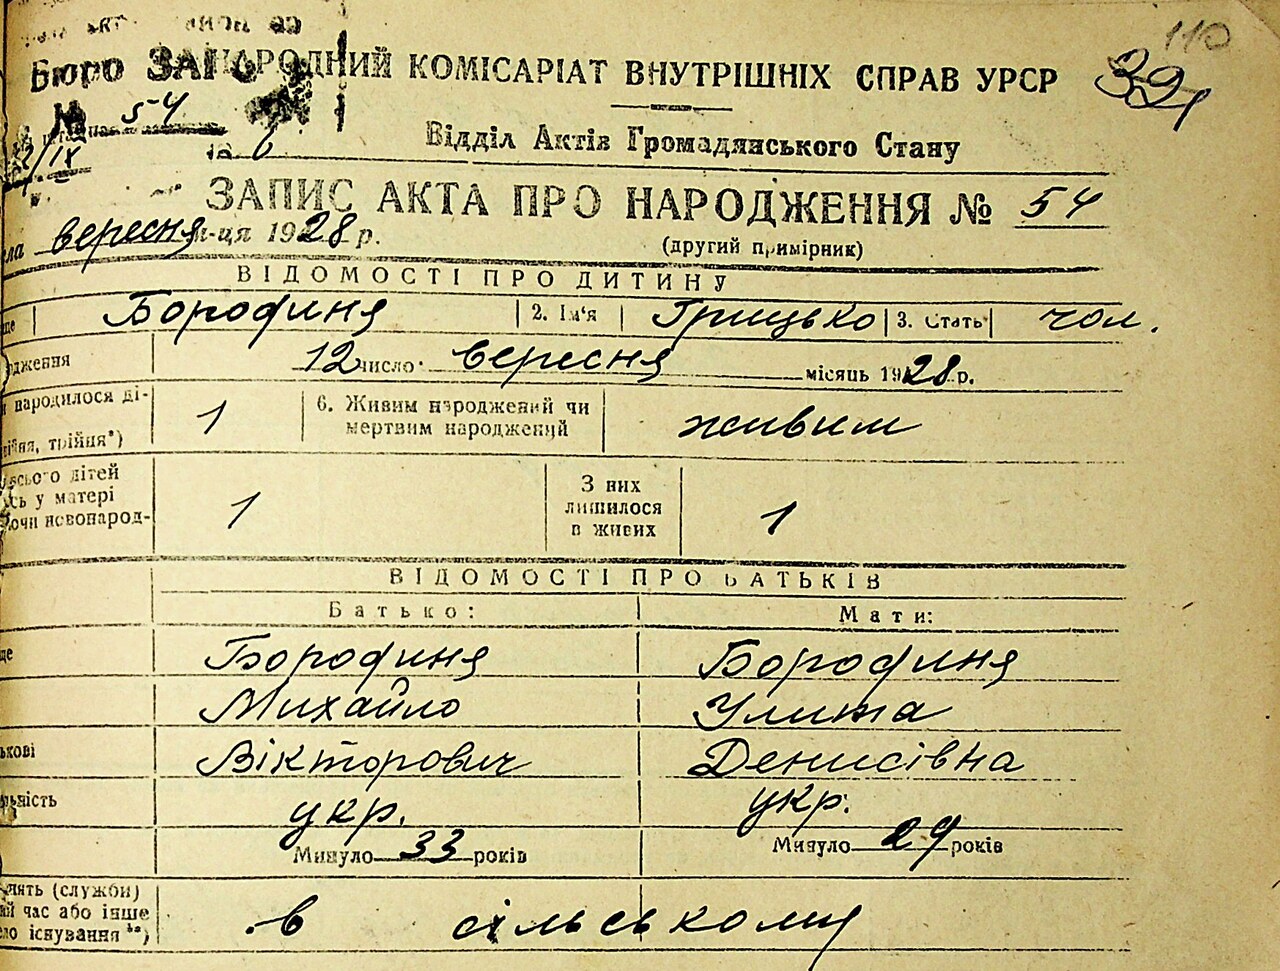 110
39
Бюро ЗАГС НАРОДНИЙ КОМІСАРІАТ ВНУТРІШНІХ СПРАВ УРСР
№ 54
Відділ Актів Громадянського Стану
/IX 6
ЗАПИС АКТА ПРО НАРОДЖЕННЯ № 54
вересня м-ця 1928 р. (другий примірник)
ВІДОМОСТІ ПРО ДИТИНУ
Бородиня 2. Ім'я Грицько 3. Стать чол.
дження 12 число вересня місяць 1928 р.
и народилося ді-
ійня, трійня*) 1 6. Живим народжений чи мертвим народжений живим
всього дітей
сь у матері
ючи новонарод- 1 З них лишилося в живих 1
ВІДОМОСТІ ПРО БАТЬКІВ
Батько: Мати:
ще Бородиня Бородиня
Михайло Улита
ькові Вікторович Денисівна
льність укр. укр.
Минуло 33 років Минуло 29 років
нять (служби)
ий час або інше
ло існування в сільському